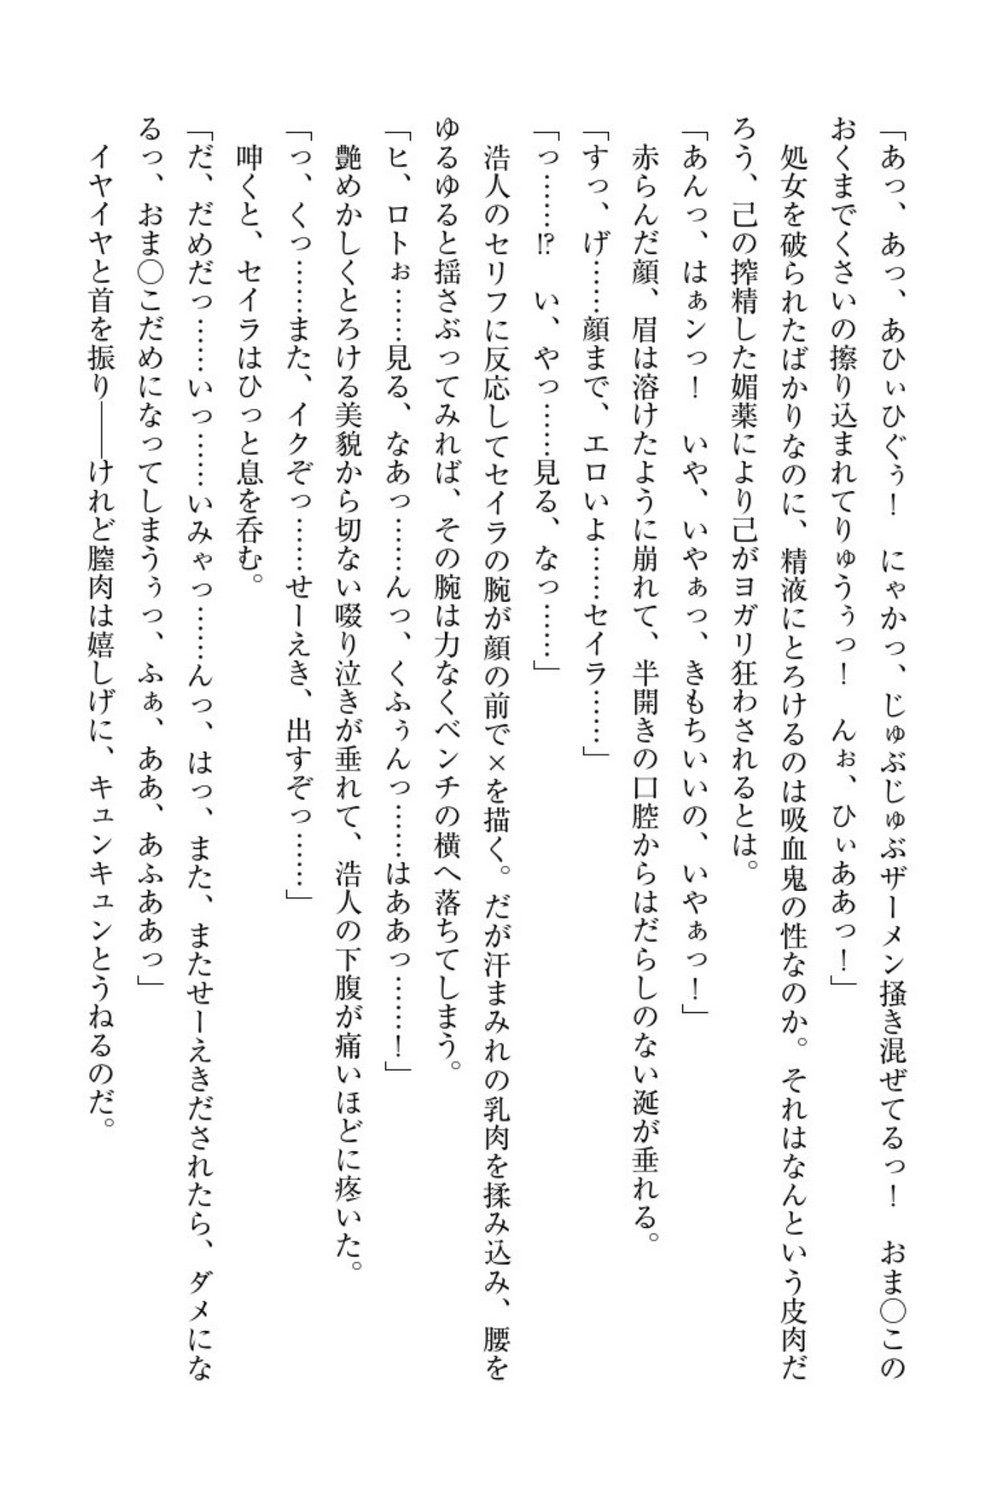 「あっ、あっ、あひぃひぐぅ！　にゃかっ、じゅぶじゅぶザーメン掻き混ぜてるっ！　おま〇この
おくまでくさいの擦り込まれてりゅうぅっ！　んぉ、ひぃああっ！」
　処女を破られたばかりなのに、精液にとろけるのは吸血鬼の性なのか。それはなんという皮肉だ
ろう、己の搾精した媚薬により己がヨガリ狂わされるとは。
「あんっ、はぁンっ！　いや、いやぁっ、きもちいいの、いやぁっ！」
　赤らんだ顔、眉は溶けたように崩れて、半開きの口腔からはだらしのない涎が垂れる。
「すっ、げ……顔まで、エロいよ……セイラ……」
「っ……⁉　い、やっ……見る、なっ……」
　浩人のセリフに反応してセイラの腕が顔の前で×を描く。だが汗まみれの乳肉を揉み込み、腰を
ゆるゆると揺さぶってみれば、その腕は力なくベンチの横へ落ちてしまう。
「ヒ、ロトぉ……見る、なあっ……んっ、くふぅんっ……はああっ……！」
　艶めかしくとろける美貌から切ない啜り泣きが垂れて、浩人の下腹が痛いほどに疼いた。
「っ、くっ……また、イクぞっ……せーえき、出すぞっ……」
　呻くと、セイラはひっと息を呑む。
「だ、だめだっ……いっ……いみゃっ……んっ、はっ、また、またせーえきだされたら、ダメにな
るっ、おま〇こだめになってしまうぅっ、ふぁ、ああ、あふああっ」
　イヤイヤと首を振り――けれど膣肉は嬉しげに、キュンキュンとうねるのだ。